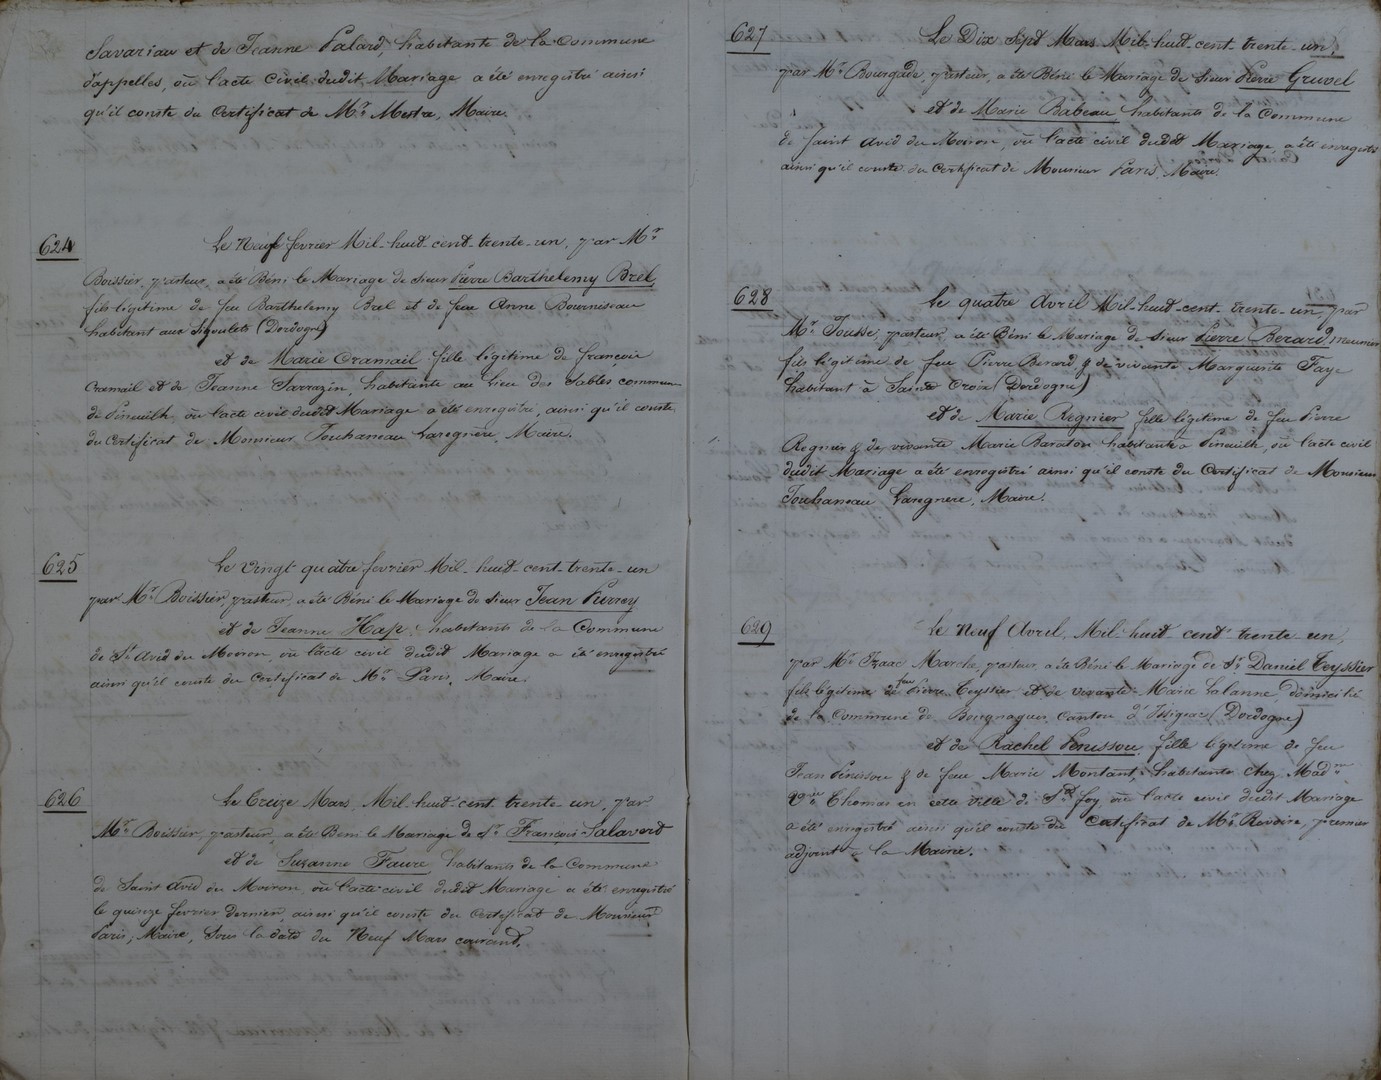 Savariau et de Jeanne Palard habitante de la Commune
d'appelles, où l'acte Civil dudit Mariage a été enregistré ainsi
qu'il conste du Certificat de Mr. Mestre, Maire.
624
Le Neuf fevrier Mil-huit-cent-trente-un, par Mr
Boissier, pasteur, a été Béni le Mariage de Sieur Pierre Barthelemy Brel
fils légitime de feu Barthelemy Brel et de feue Anne Bourniseau
habitant aux Sigoulets (Dordogne)
et de Marie Cramail fille légitime de françois
Cramail et de Jeanne Sarrazin, habitante au Lieu des Sables commune
de Pineuilh, où l'acte civil dudit Mariage a été enregistré, ainsi qu'il conste
du Certificat de Monsieur Jouhaneau Laregnère, Maire.
625
Le Vingt-quatre fevrier Mil-huit-cent-trente-un
par Mr. Boissier, pasteur, a été Béni le Mariage de Sieur Jean Purrey
et de Jeanne Hap habitants de la Commune
de St. Avid du Moiron, où l'acte civil dudit Mariage a été enregistré
ainsi qu'il conste du Certificat de Mr. Paris, Maire.
626
Le Treize Mars, Mil-huit-cent-trente-un, par
Mr. Boissier, pasteur, a été Béni le Mariage de Sr. François Salavert
et de Suzanne Faure, habitants de la Commune
de Saint Avid du Moiron, où l'acte civil dudit Mariage a été enregistré
le quinze fevrier dernier, ainsi qu'il conste du Certificat de Monsieur
Paris, Maire, sous la date du Neuf Mars courant.
627
Le Dix Sept Mars Mil-huit-cent-trente-un,
par Mr. Bourgade, pasteur, a été Béni le Mariage de Sieur Pierre Gruvel
et de Marie Babeau habitants de la Commune
de Saint Avid du Moiron, où l'acte civil dudit Mariage, a été enregistré
ainsi qu'il conste du Certificat de Monsieur Paris, Maire.
628
Le quatre Avril Mil-huit-cent-trente-un, par
Mr. Jousse, pasteur, a été Béni le Mariage de Sieur Pierre Berard meunier
fils légitime de feu Pierre Berard & de vivante Marguerite Faye
habitant à Sainte Croix (Dordogne)
et de Marie Regnier fille légitime de feu Pierre
Regnier & de vivante Marie Baraton habitante à Pineuilh, où l'acte civil
dudit Mariage a été enregistré ainsi qu'il conste du Certificat de Monsieur
Jouhaneau Laregnère, Maire.
629
Le Neuf Avril, Mil-huit-cent-trente-un,
par Mr. Izaac Marche, pasteur, a été Béni le Mariage de Sr. Daniel Teyssier
fils légitime de feu Pierre Teyssier et de vivante Marie Lalanne, domicilié
de la Commune de Bourgnaguer, Canton d'Issigeac (Dordogne)
et de Rachel Penissou fille légitime de feu
Jean Penissou & de feue Marie Montant, habitante chez Mad.me
Thomas en cette ville de Ste. foy, où l'acte civil dudit Mariage
a été enregistré ainsi qu'il conste du Certificat de Mr. Ravoire, premier
adjoint à la Mairie.